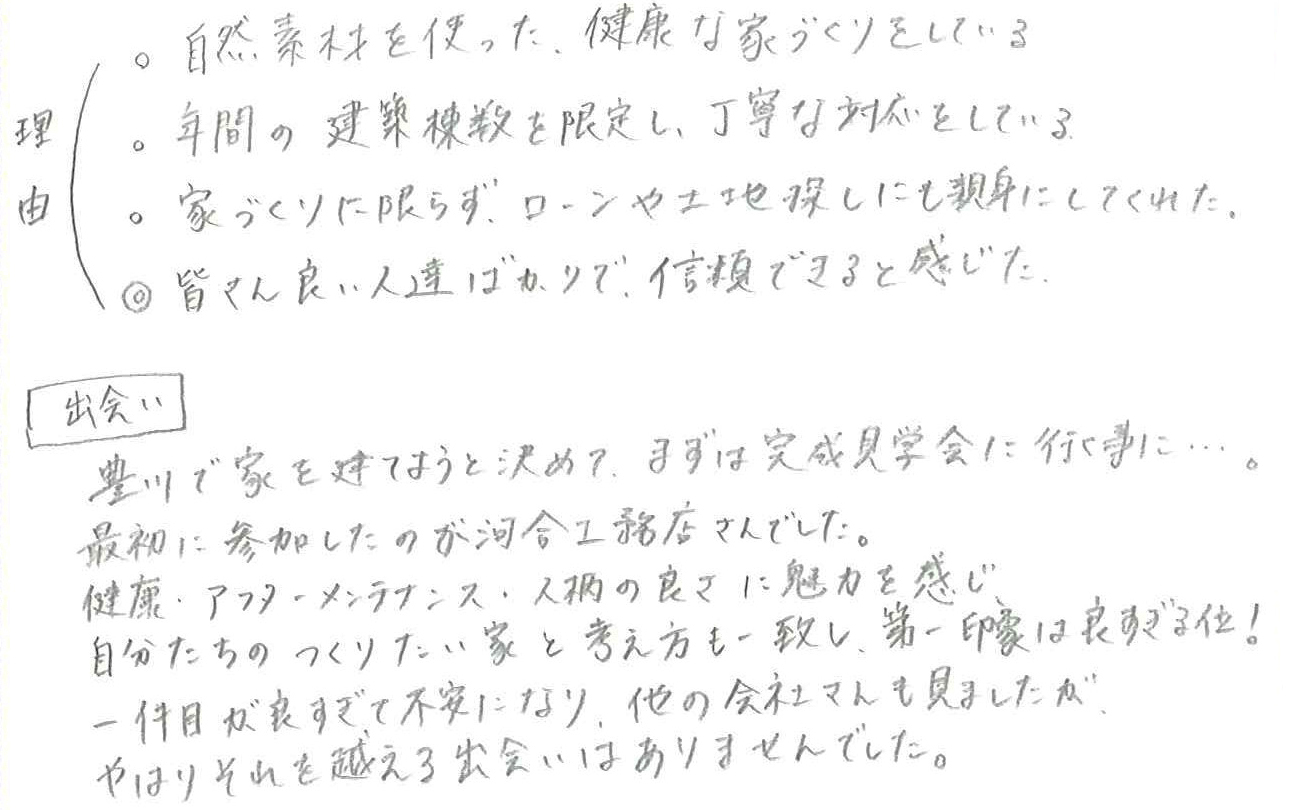 理由
○ 自然素材を使った、健康な家づくりをしている
○ 年間の建築棟数を限定し、丁寧な対応をしている
○ 家づくりに限らず、ローンや土地探しにも親身にしてくれた。
◎ 皆さん良い人達ばかりで、信頼できると感じた。
出会い
豊川で家を建てようと決めて、まずは完成見学会に行く事に…。
最初に参加したのが河合工務店さんでした。
健康・アフターメンテナンス・人柄の良さに魅力を感じ、
自分たちのつくりたい家と考え方も一致し、第一印象は良すぎる位！
一件目が良すぎて不安になり、他の会社さんも見ましたが、
やはりそれを越える出会いはありませんでした。